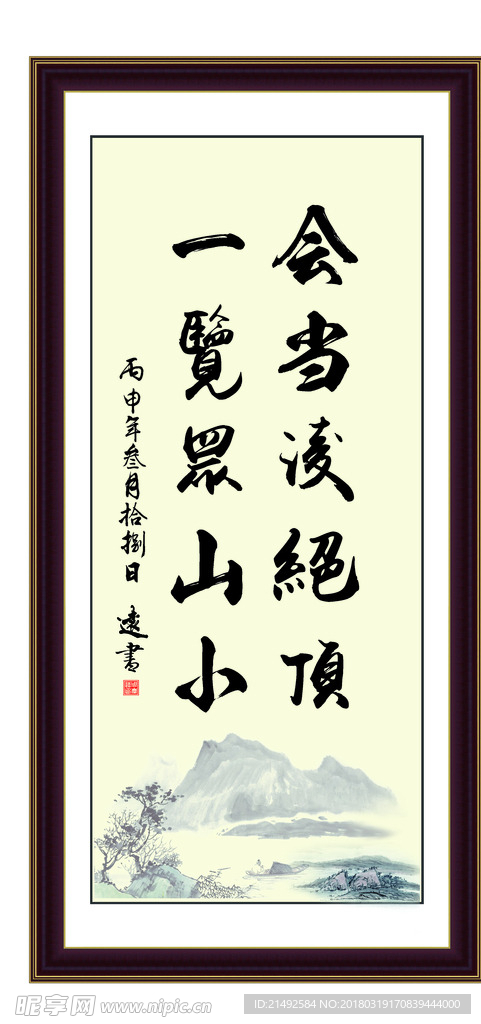 会当凌絕頂
一覽眾山小
丙申年叁月拾捌日 遠書
昵享网 www.nipic.cn
ID:21492584 NO:20180319170839444000